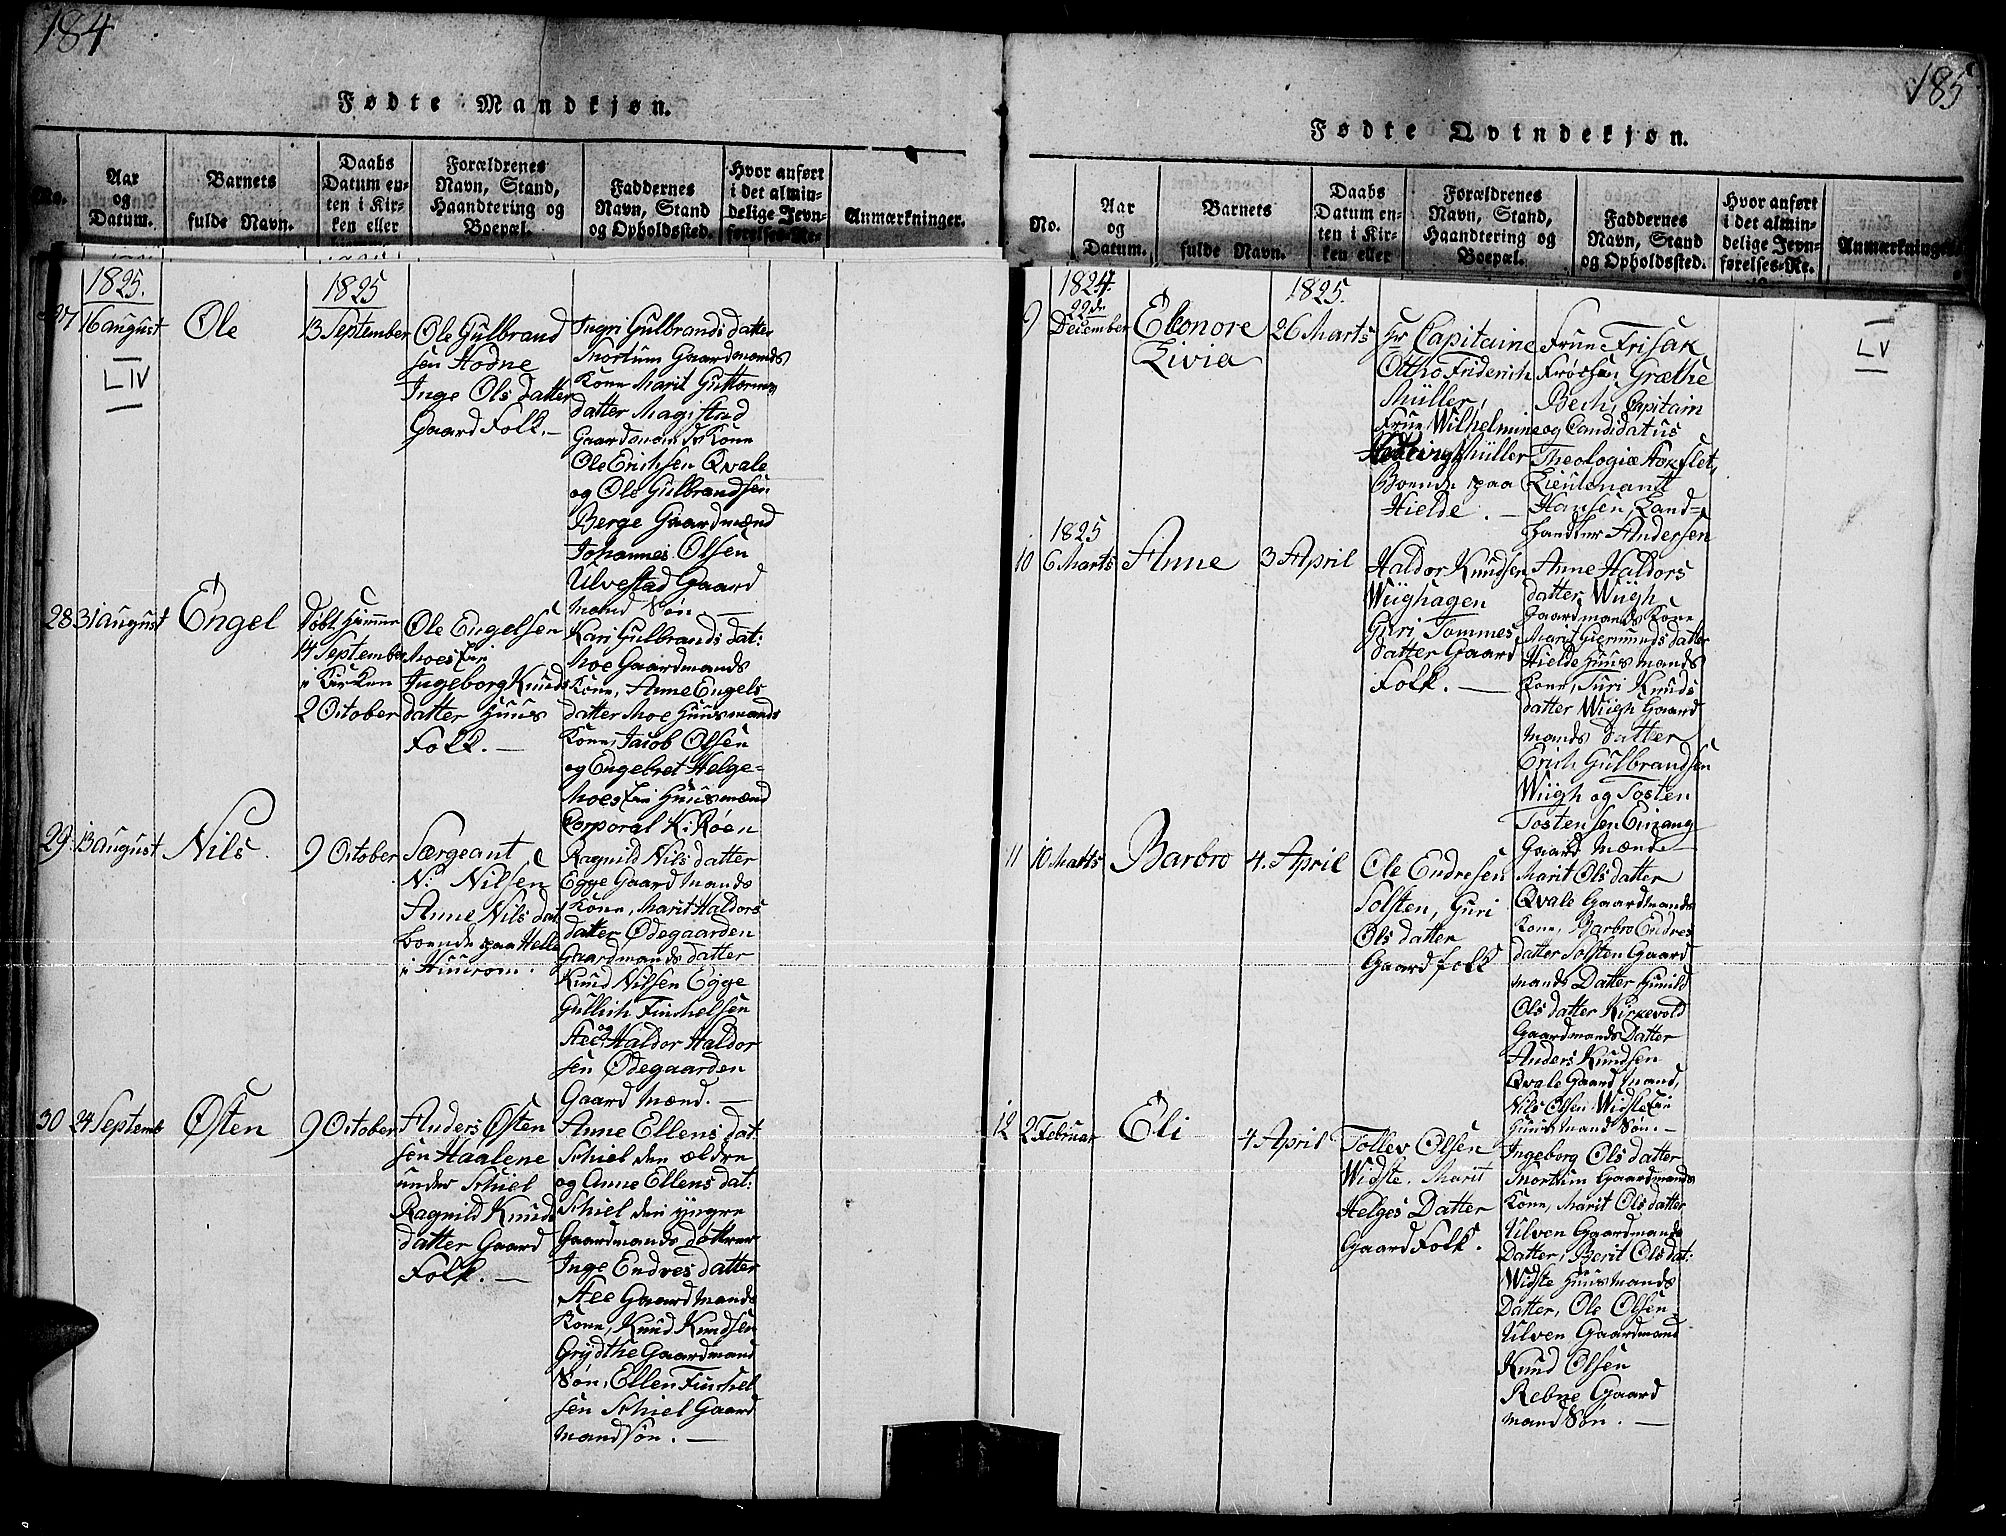 184
Fødte Mandkjøn.
No.
Aar
og
Datum.
Barnets
fulde Navn.
Daabs
Datum en-
ten i Kir-
ken eller
Forældrenes
Navn, Stand,
Haandtering og
Boepæl.
Faddernes
Navn, Stand
og Opholdssted.
Hvor anført
i det almin-
delige Jevn-
førelses-Re-
Anmærkninger.
1825.
1825
27
16 august
LIV
Ole
13 September
Ole Gulbrand
sen Hodne
Inge Ols datter
Gaard Folk. —
Ingri Gulbrands datter
Mortum Gaardmands
Kone Marit Guttorms
datter Magistad
Gaardmands Kone
Ole Erichsen Qvale
og Ole Gulbrandsen
Berge Gaardmænd
Johannes Olsen
Ulvestad Gaard
mand Søn. —
28
31 august
Engel
Døbt hiemme
14 September
i Kirken
2 October
Ole Engelsen
Moes Eie
Ingeborg Knuds
datter Huus
Folk. —
Kari Gulbrands dat:
Moe Gaardmands
Kone, Anne Engels
datter Moe Huusmands
Kone, Jacob Olsen
og Engebret Helge-
Moes Eie Huusmænd
Corporal K: Røen
29
13 august
Nils.
9 October
Særgeant
N: Nilsen
Anne Nils dat
boende paa Helle
i Huusrom.
Ragnild Nils datter
Egge Gaard Mands
Kone, Marit Haldors
datter Ødegaarden
Gaardmands datter
Knud Nilsen Egge
Gullich Finchelsen
Hee og Haldor Haldor
sen Ødegaarden
Gaard Mænd. —
30
24 Septemb
Østen
9 October
Anders Østen
sen Haalene
under Schiel
Ragnild Knuds
datter Gaard
Folk. —
Anne Ellens dat
Schiel den ældre
og Anne Ellens dat:
Schiel den yngre
Gaardmands døttrer
Inge Endres datter
Hee Gaard Mands
Kone, Knud Knudsen
Grydthe Gaardmand
Søn, Ellen Finchel
sen Schiel Gaard
mand søn. —
185
Fødte Qvindekjøn.
No.
Aar
og
Datum.
Barnets
fulde Navn.
Daabs
Datum en-
ten i Kir-
ken eller
Forældrenes
Navn, Stand,
Haandtering og
Boepæl.
Faddernes
Navn, Stand
og Opholdssted.
Hvor anført
i det almin-
delige Jevn-
førelses-Re.
Anmærkninger
1824.
1825.
9
22de
December
Elonore
Livia
26 Marts
Hr Capitaine
Ottho Friderich
Müller,
Frue Wilhelmine
Müller
Boende paa
Hielde. —
Frue Frisak
Frøcsen Græthe
Bech, Capitain
og Candidatus
Theologiæ Horflet,
Lieutenant
Hansen, Land-
handler Andersen
LV
1825
10
6 Marts
Anne
3 April
Haldor Knudsen
Wiighagen
Guri Tommes
datter Gaard
Folk. —
Anne Haldors
datter Wiigh
Gaardmands Kone
Marit Giermunds datter
Hielde Huusmands
Kone, Turi Knuds
datter Wiigh Gaard
mands Datter
Erich Gulbrandsen
Wiigh og Tosten
Tostensen Einang
Gaard Mænd —
11
10 Marts
Barbro
4. April
Ole Endresen
Solsten, Guri
Ols datter
Gaard folk
Marit Ols datter
Qvale Gaardmands
Kone, Barbro Endres
datter Solsten Gaard
mands Datter Gunild
Ols datter Kirkevold
Gaardmands Datter
Anders Knudsen
Qvale Gaard Mand,
Nils Olsen Widste Eie
Huusmand Søn. —
12
2 Februar
Eli
4 April
Tollev Olsen
Widste. Marit
Helges Datter
Gaard Folk.
Ingeborg Ols datter
Morthum Gaardmands
Kone, Marit Ols datter
Ulven Gaardmands
Datter, Berit Ols dat:
Widste Huusmands
Datter, Ole Olsen
Ulven Gaardmand
Knud Olsen
Rebne Gaard
mand Søn. —